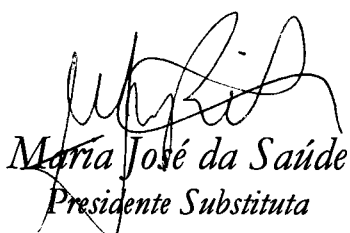 Maria José da Saúde
Presidente Substituta